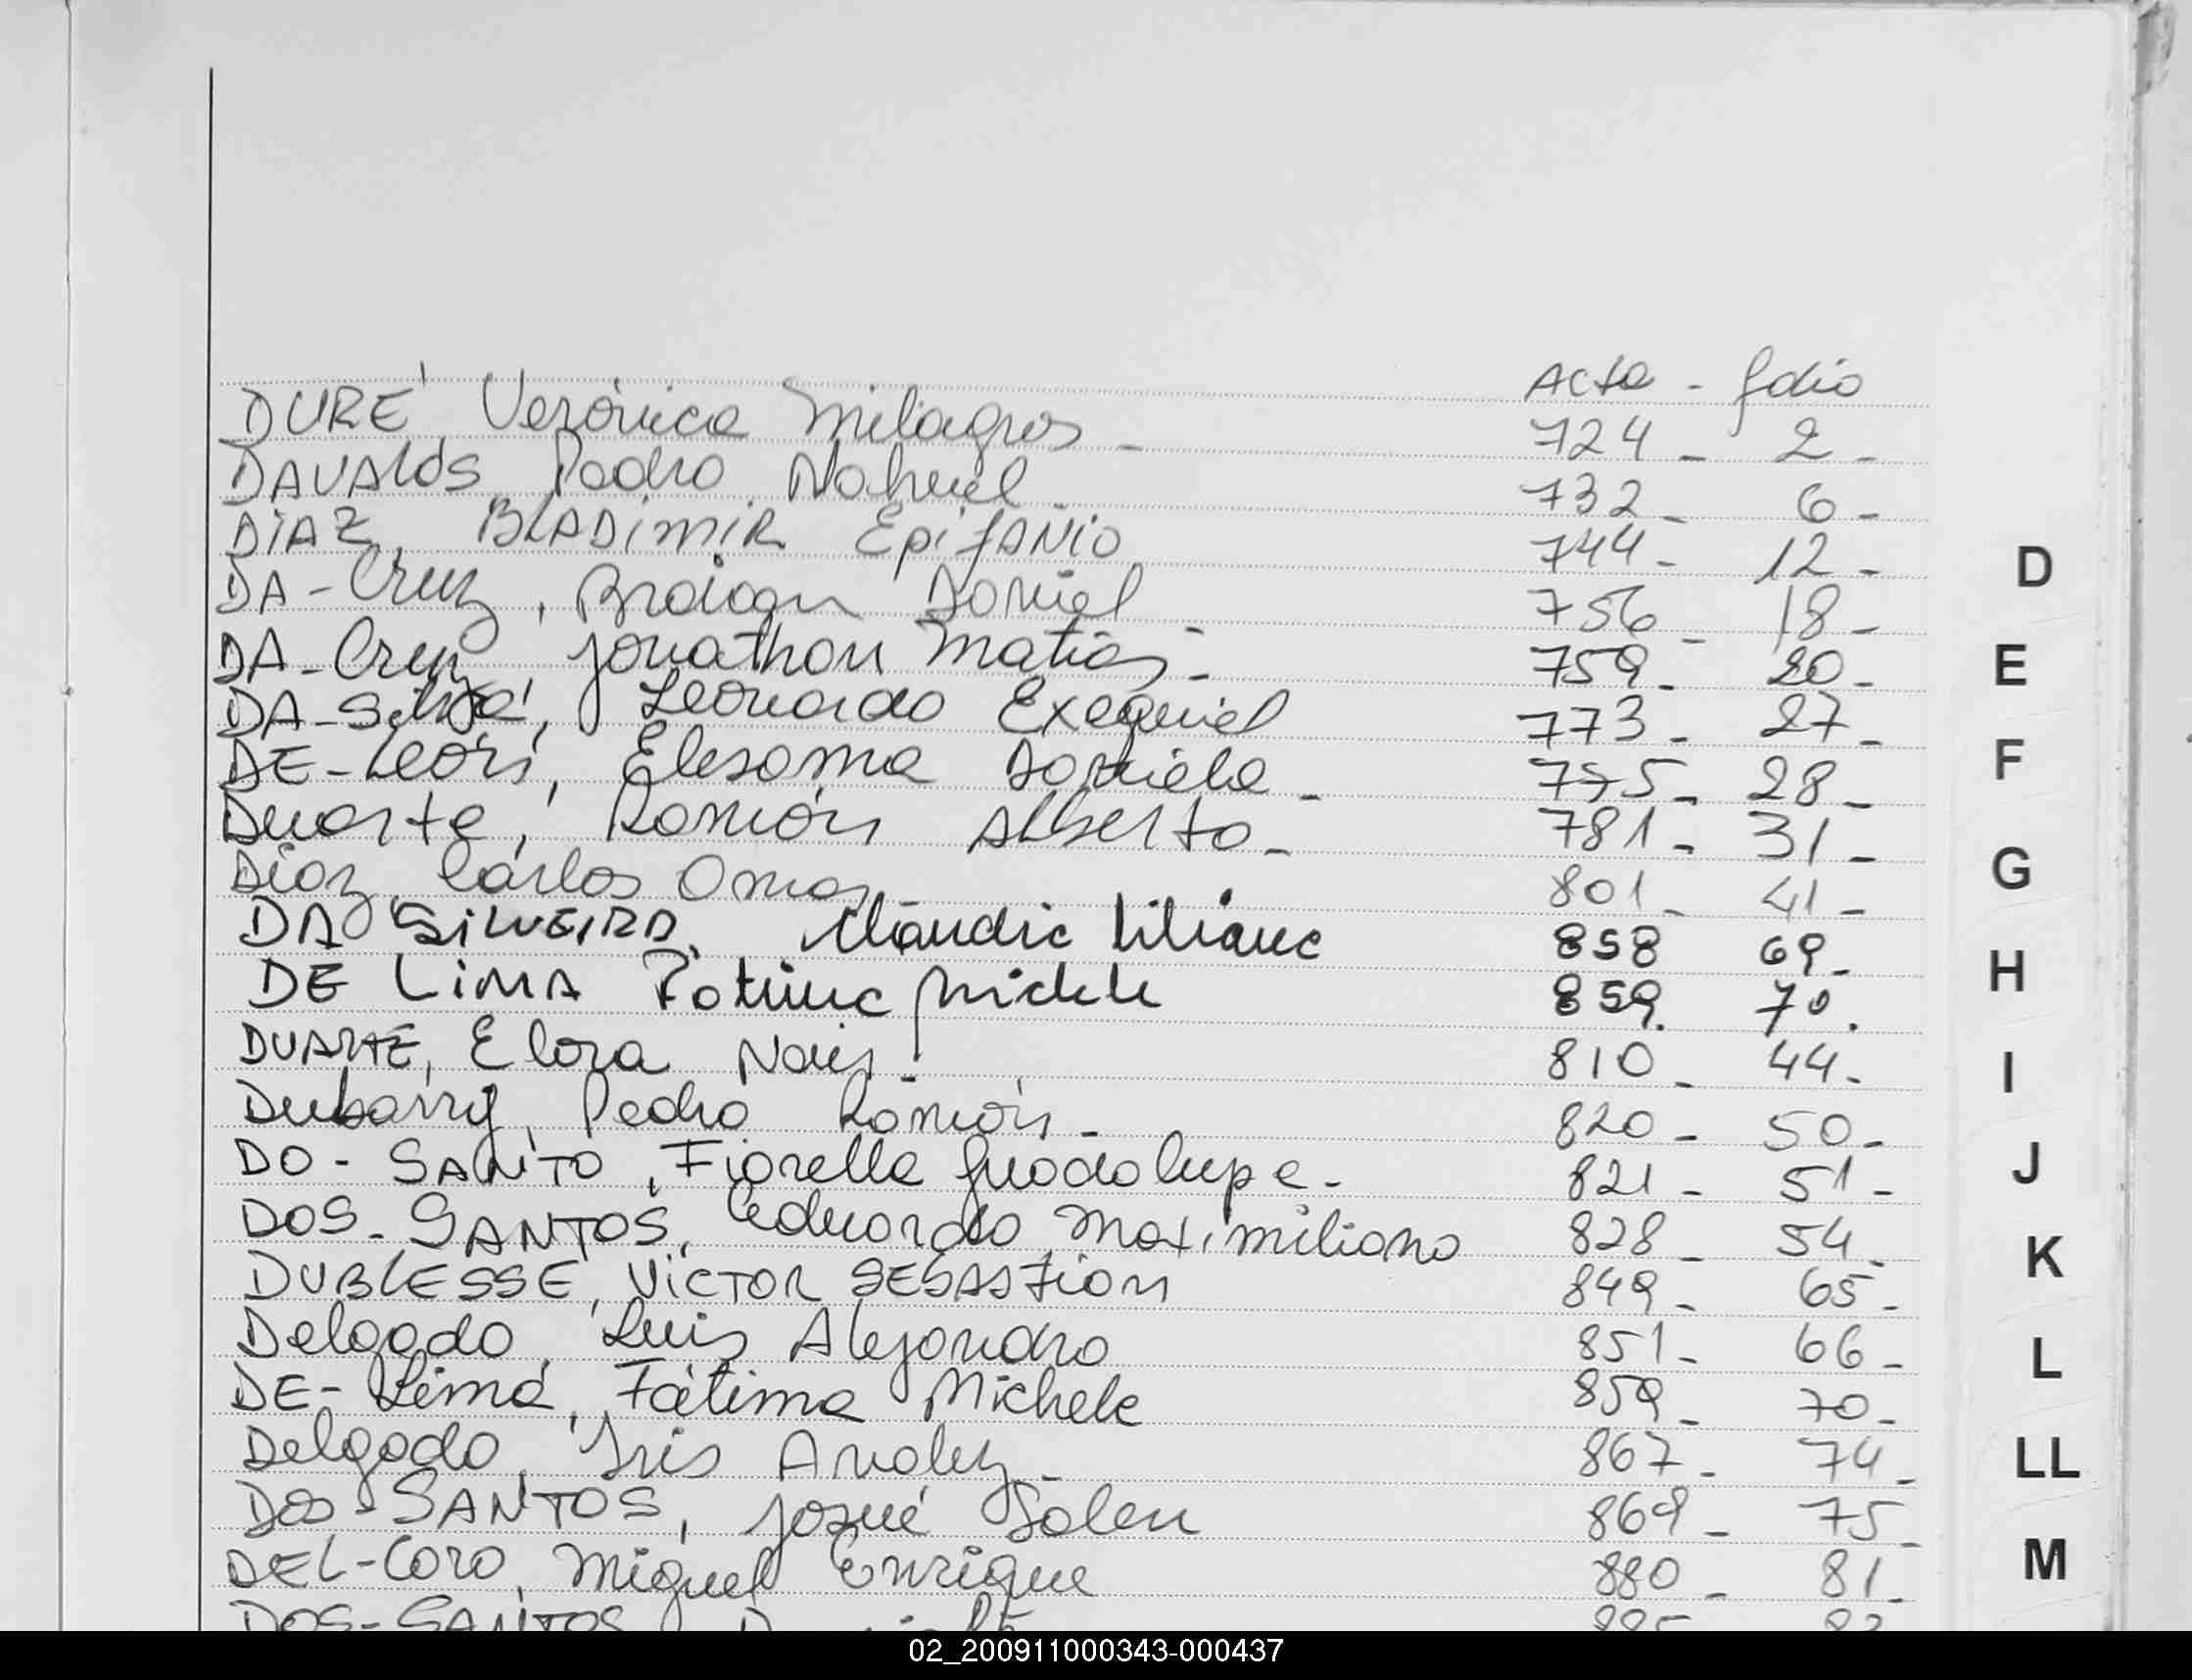 Acta - folio
DURÉ, Verónica Milagros - 724 - 2 -
DAVALOS, Pedro Nahuel - 732 - 6 -
DIAZ, BLADIMIR EpifANIO 744 - 12 -
DA-Cruz, Braian Daniel - 756 - 18 -
DA-Cruz, Jonathan Matías - 759 - 20 -
DA-Silva, Leonardo Exequiel 773 - 27 -
DE-León, Daniela - 775 - 28 -
Duarte, Ramón Alberto - 781 - 31 -
Díaz, Carlos Omar 801 - 41 -
DA SILVEIRA, Claudia Liliana 858 69 -
DE LIMA Fatima Michele 859. 70.
DUARTE, Elora - 810 - 44 -
Dubarry, Pedro Ramón - 820 - 50 -
DO - SANTO, Fiorella Guadalupe - 821 - 51 -
DOS - SANTOS, Eduardo Maximiliano 828 - 54 -
DUBLESSE, VICTOR SEBASTian 849 - 65 -
Delgado, Luis Alejandro 851 - 66 -
DE-Lima, Fátima Michele 859 - 70 -
Delgado, Iris - 867 - 74 -
DOS-SANTOS, Josué 869 - 75 -
DEL-Coro, Miguel Enrique 880 - 81 -
DOS-SANTOS
D
E
F
G
H
I
J
K
L
LL
M
02_200911000343-000437